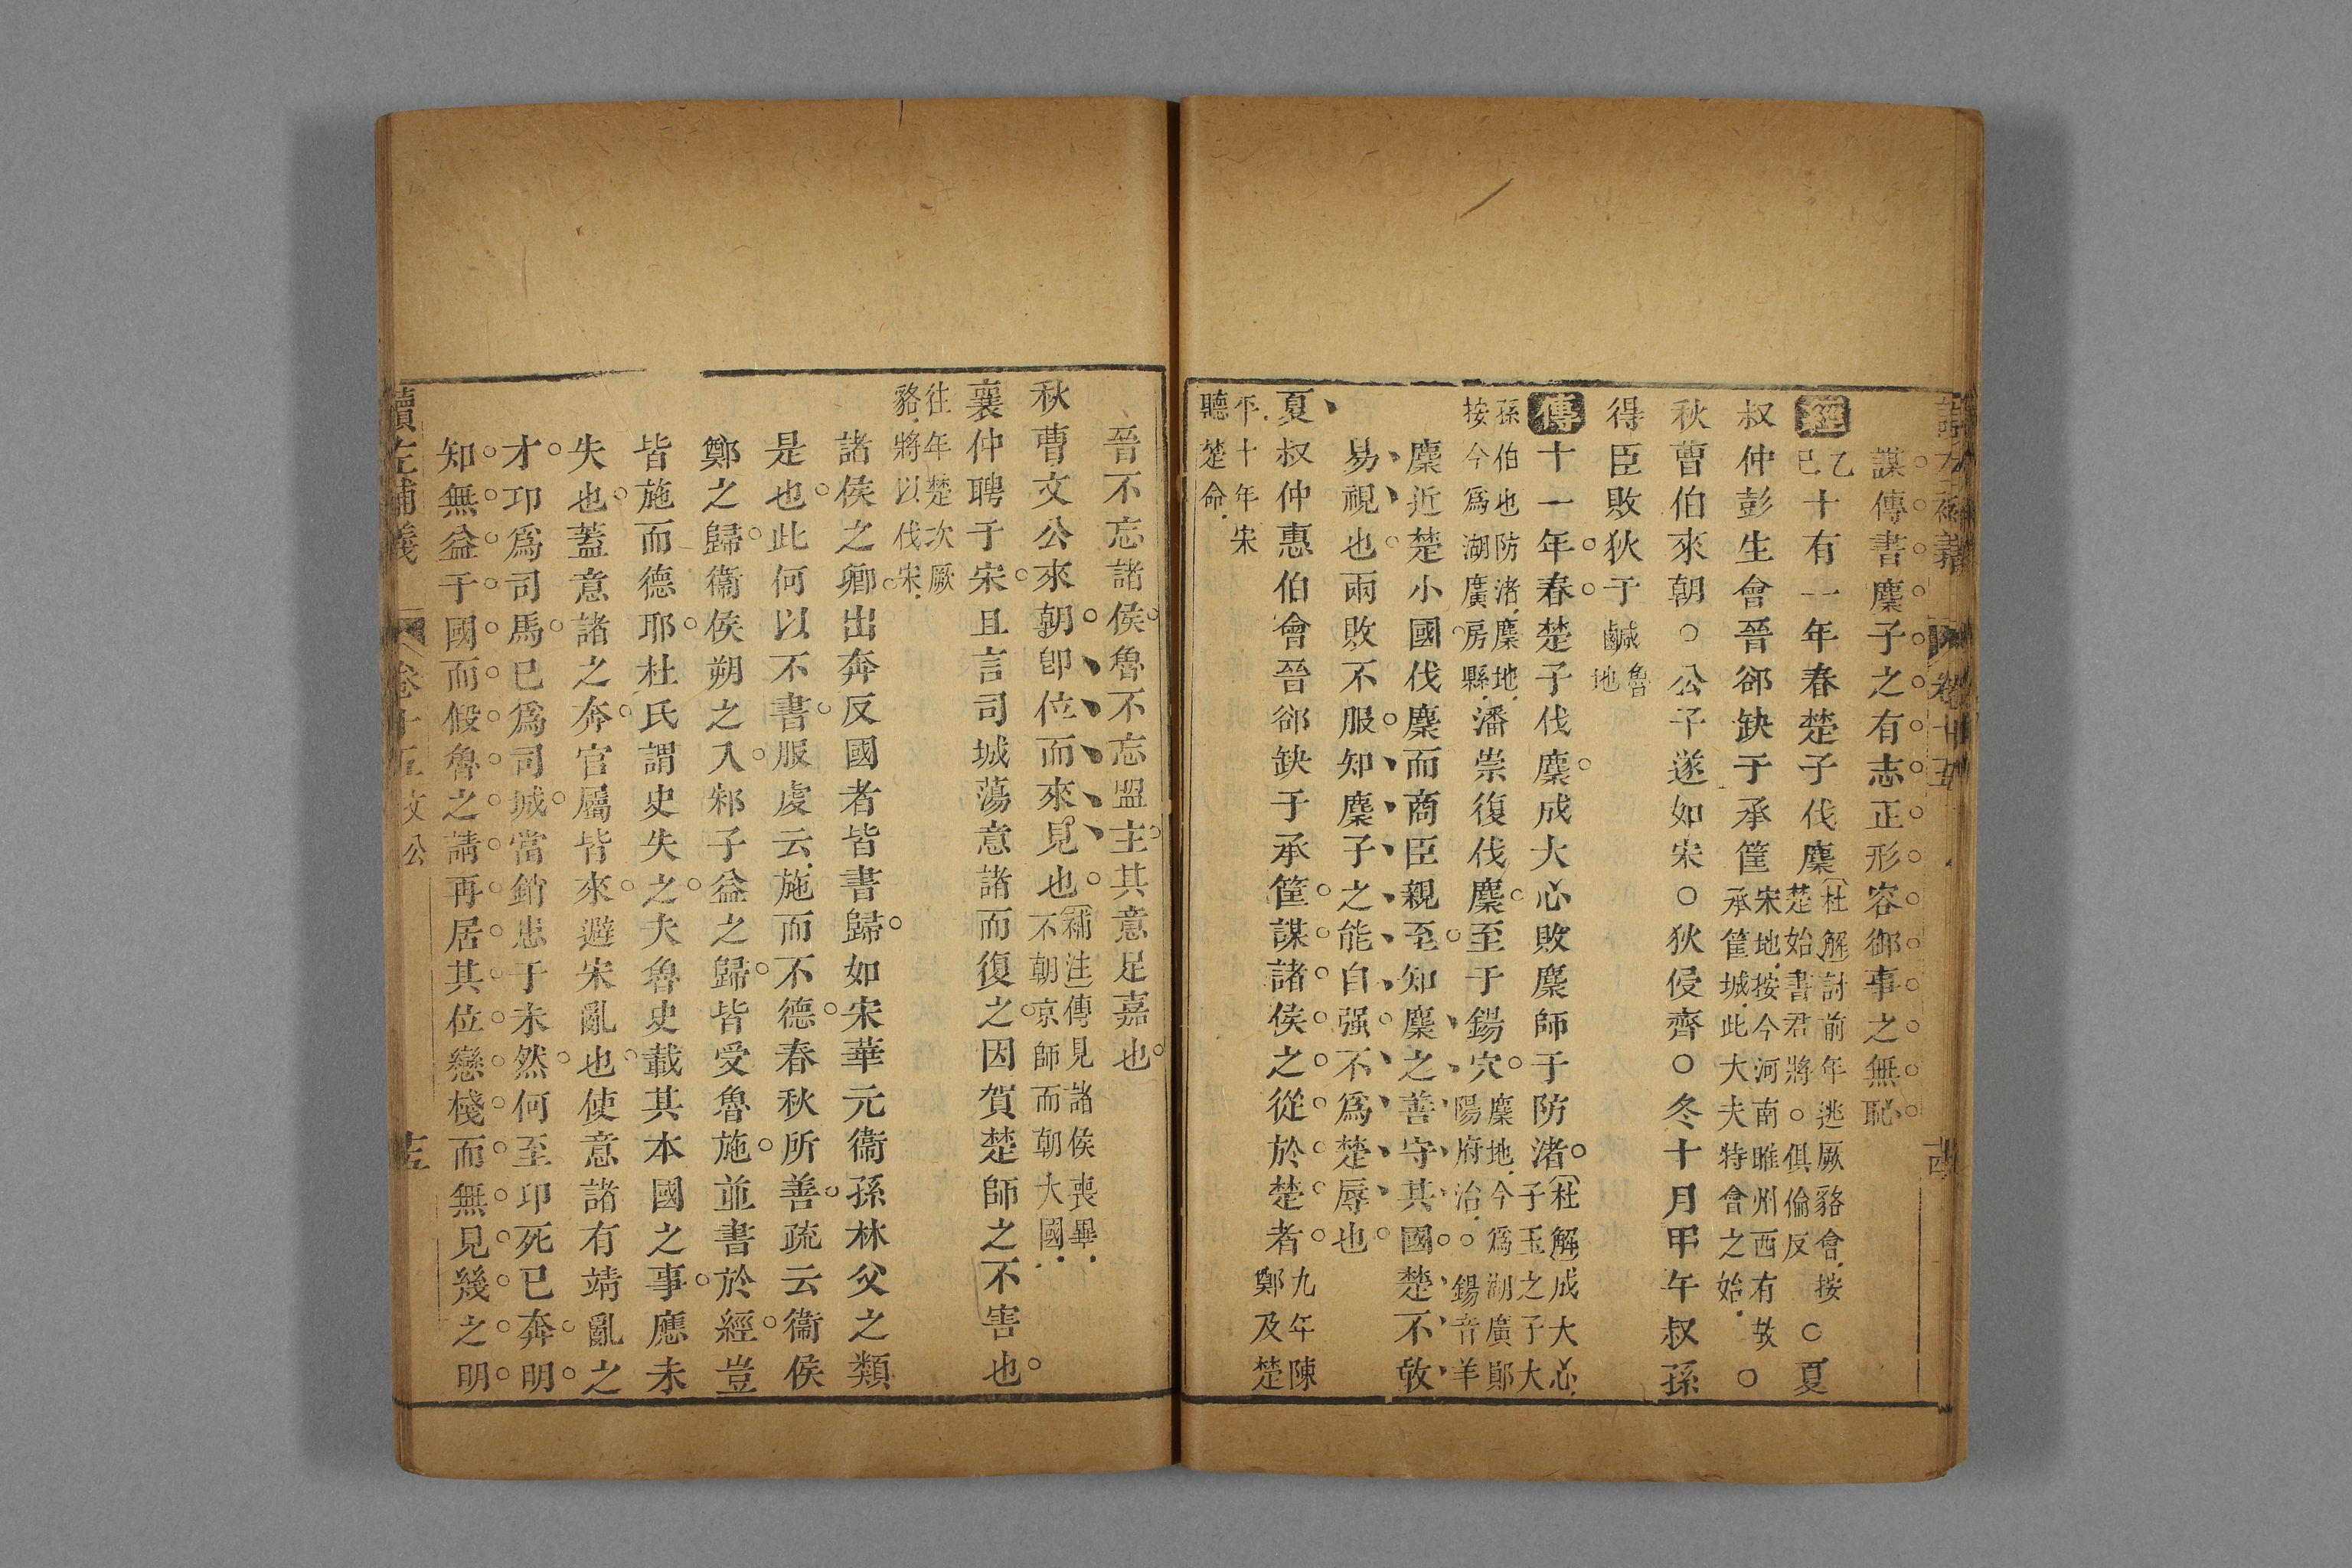 讀左補義 卷十五 十四
謀傳書麇子之有志正形容御事之無恥
經乙巳十有一年春楚子伐麇杜解討前年逃厥貉會按楚始書君將○俱倫反○夏
叔仲彭生會晉郤缺于承筐宋地按今河南睢州西有故承筐城此大夫特會之始○
秋曹伯來朝○公子遂如宋○狄侵齊○冬十月甲午叔孫
得臣敗狄于鹹魯地
傳十一年春楚子伐麇成大心敗麇師于防渚杜解成大心子玉之子大
孫伯也防渚麇地按今爲湖廣房縣潘崇復伐麇至于錫穴麇地今爲湖廣鄖陽府治○錫音羊
麇近楚小國伐麇而商臣親至知麇之善守其國楚不敢
易視也兩敗不服知麇子之能自强不爲楚辱也
夏叔仲惠伯會晉郤缺于承筐謀諸侯之從於楚者九年陳鄭及楚
平十年宋聽楚命
晉不忘諸侯魯不忘盟主其意足嘉也
秋曹文公來朝卽位而來見也補注傳見諸侯喪畢不朝京師而朝大國
襄仲聘于宋且言司城蕩意諸而復之因賀楚師之不害也
往年楚次厥貉將以伐宋
諸侯之卿出奔反國者皆書歸如宋華元衞孫林父之類
是也此何以不書服虔云施而不德春秋所善疏云衞侯
鄭之歸衞侯朔之入邾子益之歸皆受魯施並書於經豈
皆施而德耶杜氏謂史失之夫魯史載其本國之事應未
失也蓋意諸之奔官屬皆來避宋亂也使意諸有靖亂之
才卭爲司馬已爲司城當銷患于未然何至卭死已奔明
知無益于國而假魯之請再居其位戀棧而無見幾之明
讀左補義 卷十五文公 十五